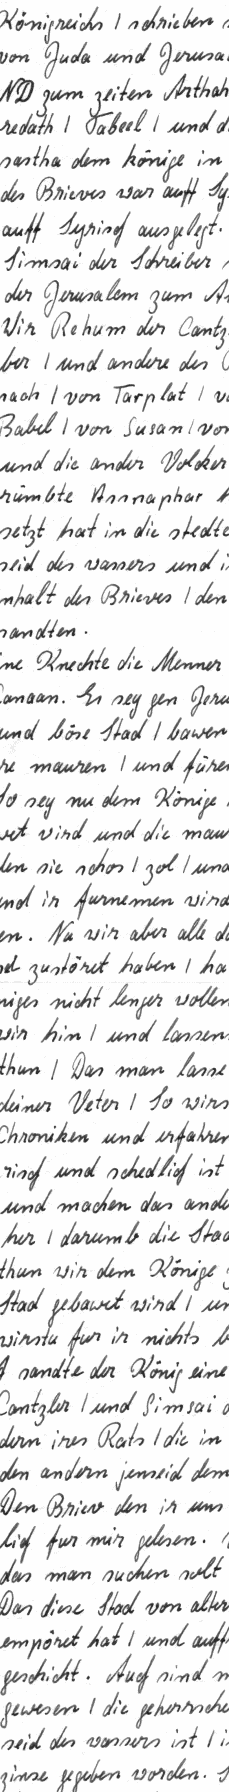 Königreichs / schrieben
von Juda und Jerusa
ND zum zeiten Arthah
redath / Tabeel / und d
sastha dem könige in
des Brieves war auff Sy
auff Syrisch ausgelegt.
Simsai der Schreiber
der Jerusalem zum Ar
Wir Rehum der Cantz
ber / und andere des
nach / von Tarplat / v
Babel / von Susan / von
und die ander Volcker
rümbte Asnaphar
setzt hat in die stedte
seid des wassers und i
nhalt des Brieves / den
sandten.
ine Knechte die Menner
Canaan. Es sey gen Jeru
und böse Stad / bawen
re mauren / und füren
So sey nu dem Könige
wet wird und die maur
den sie schos / zol / und
und ir furnemen wird
en. Nu wir aber alle da
sel zustöret haben / ha
niges nicht lenger wollen
wir hin / und lassens
thun / Das man lasse
deiner Veter / So wirs
Chroniken und erfahren
risch und schedlich ist
und machen das ande
her / darumb die Stad
thun wir dem Könige
Stad gebawet wird / un
wirstu fur ir nichts b
sandte der König eine
Cantzler / und Simsai
dern ires Rats / die in
den andern jenseid dem
Den Briev den ir uns
lich fur mir gelesen.
das man suchen solt
Das diese Stad von alter
empöret hat / und auff
geschicht. Auch sind m
gewesen / die geherrsche
seid des wassers ist / i
zinse gegeben worden. S